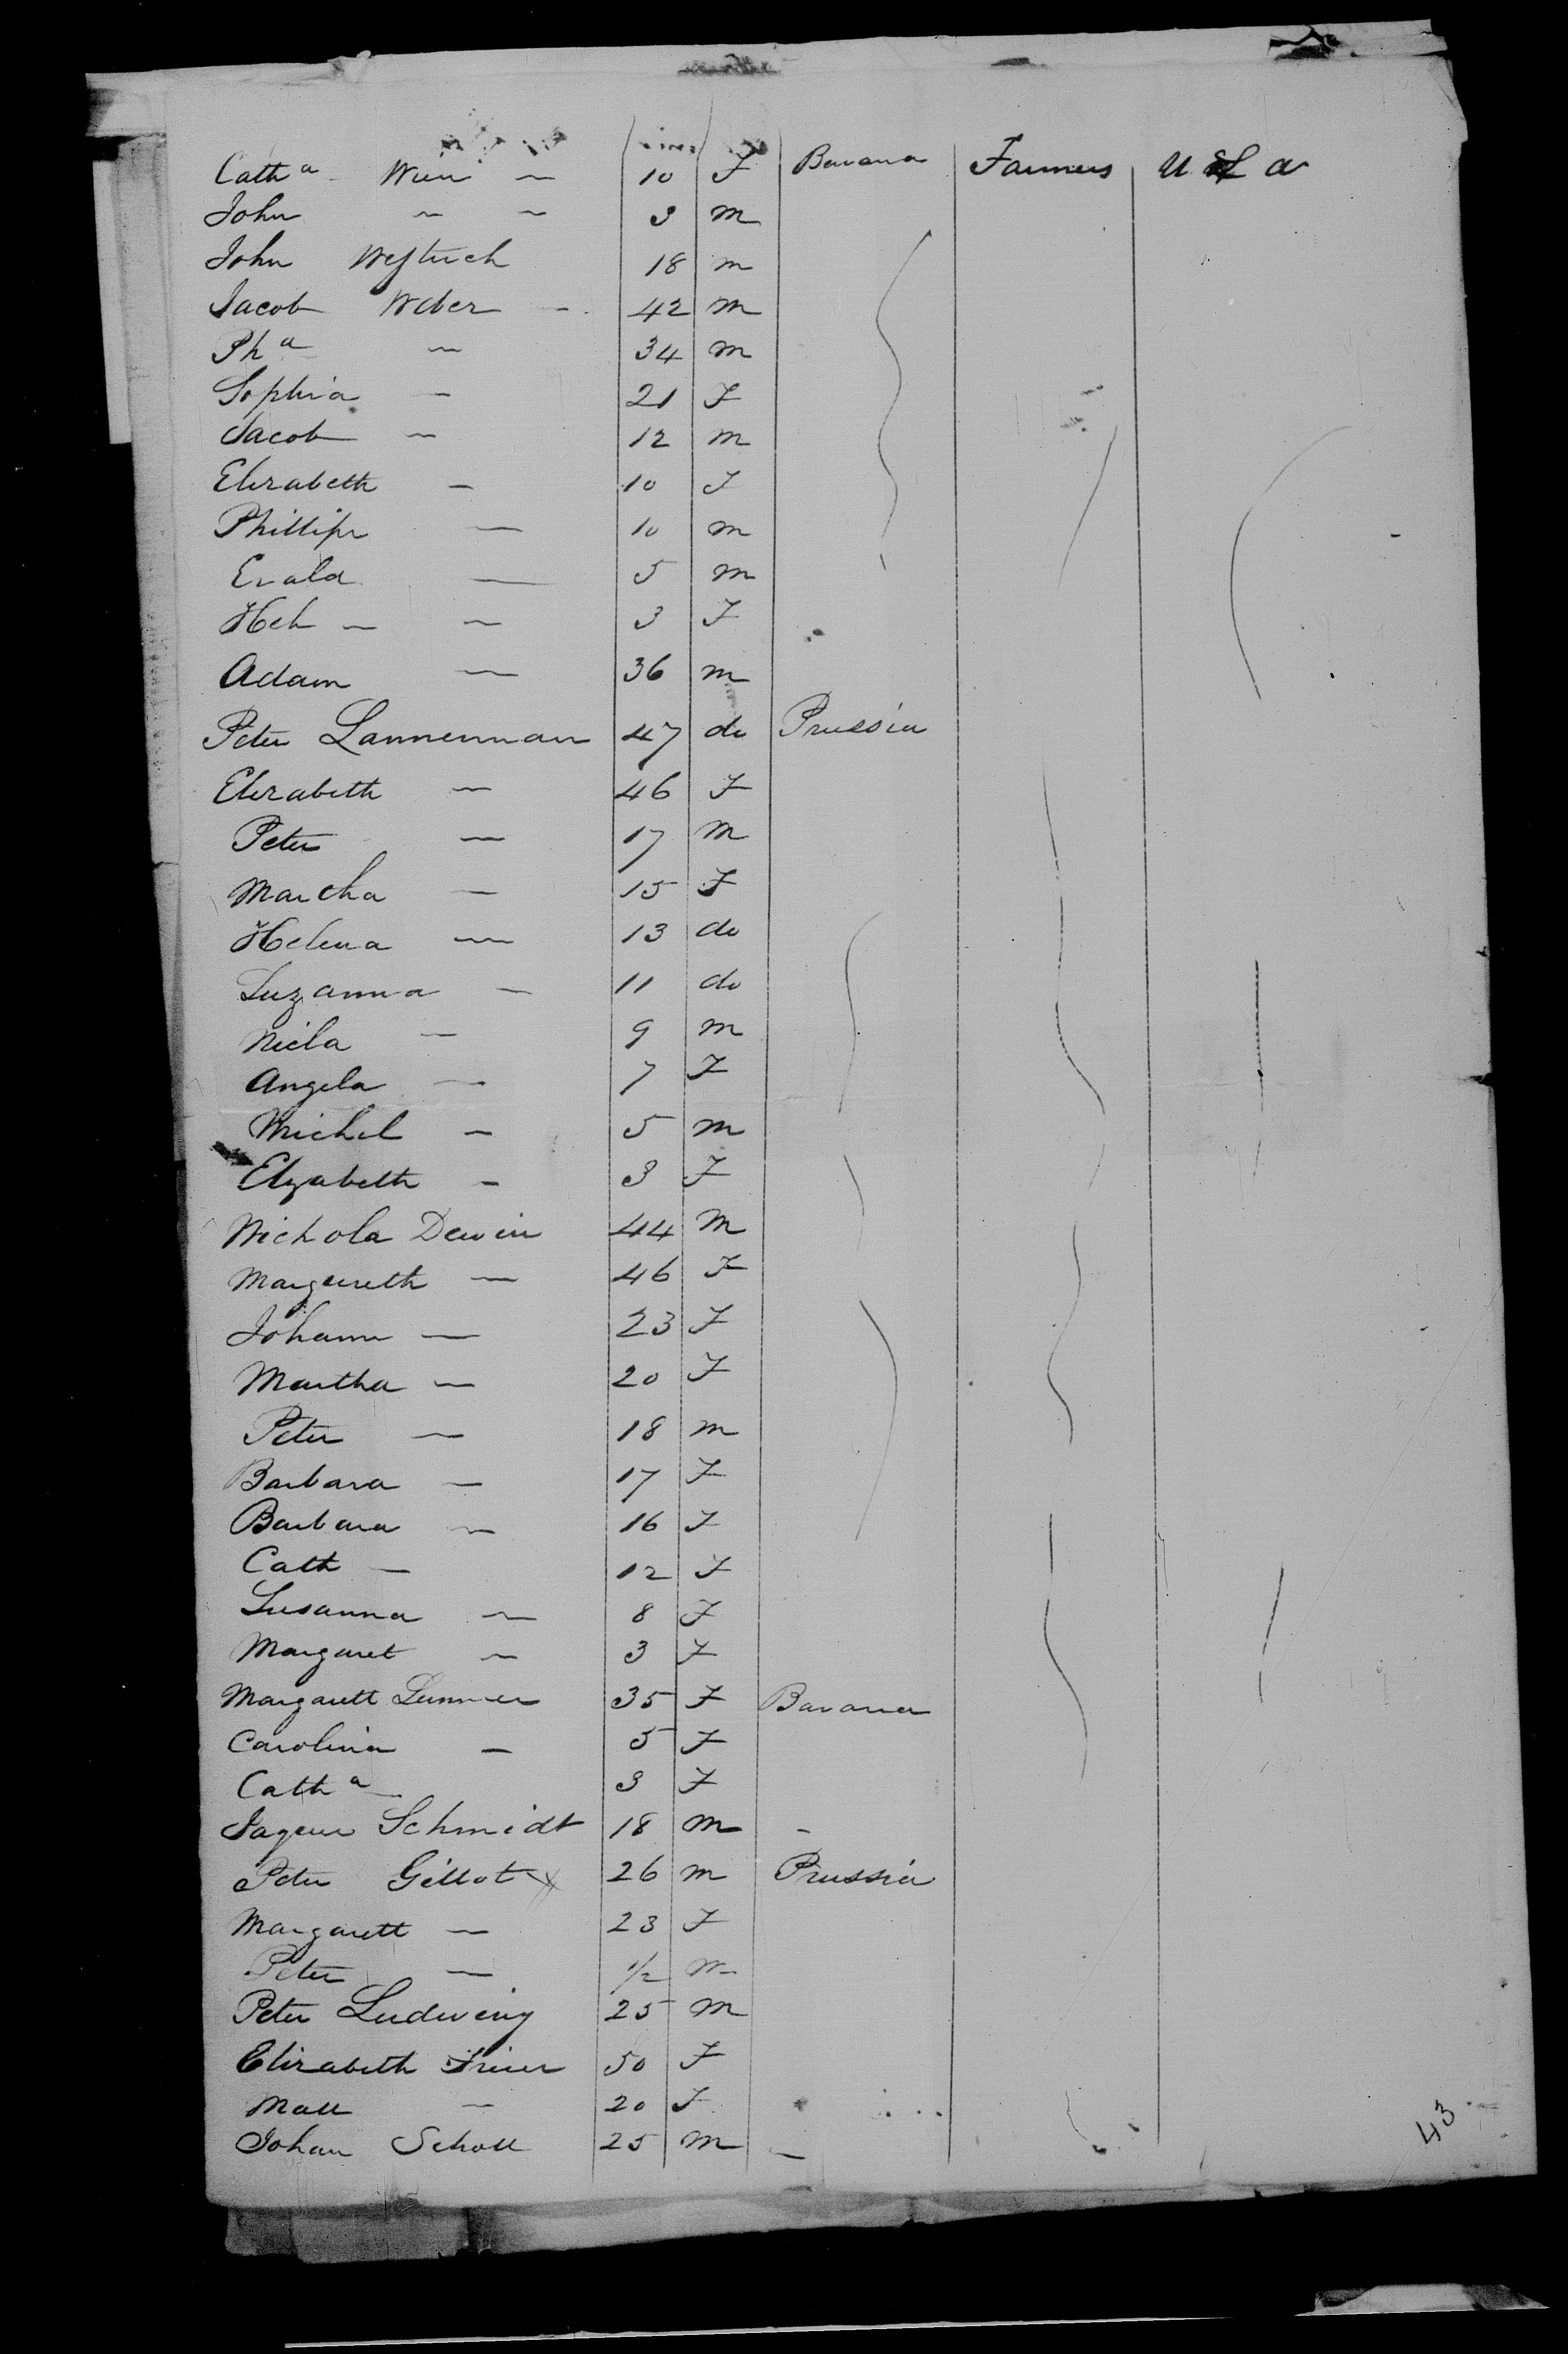 Cath a Wien — 10 F Bavaria Farmers U S a
John — — 3 m
John Westrich 18 m
Jacob Weber — 42 m
Ph a — 34 m
Sophia — 21 F
Jacob — 12 m
Elizabeth — 10 F
Phillip — 10 m
Evald — 5 m
Hch — — 3 F
Adam — 36 m
Peter Lannenman 47 do Prussia
Elizabeth — 46 F
Peter — 17 m
Martha — 15 F
Helena — 13 do
Suzanna — 11 do
Nicla — 9 m
Angela — 7 F
Michel — 5 m
Elzabeth — 3 F
Nichola Dewin 44 m
Margereth — 46 F
Johann — 23 F
Martha — 20 F
Peter — 18 m
Barbara — 17 F
Barbara — 16 F
Cath — 12 F
Susanna — 8 F
Margaret — 3 F
Margarett 35 F Bavaria
Carolina — 5 F
Cath a 3 F
Schmidt 18 m -
Peter Gillot x 26 m Prussia
Margarett — 23 F
Peter — 1/2 m
Peter Ludwenig 25 m
Elizabeth Frier 50 F
Mall — 20 F
Johan Scholl 25 m —
43